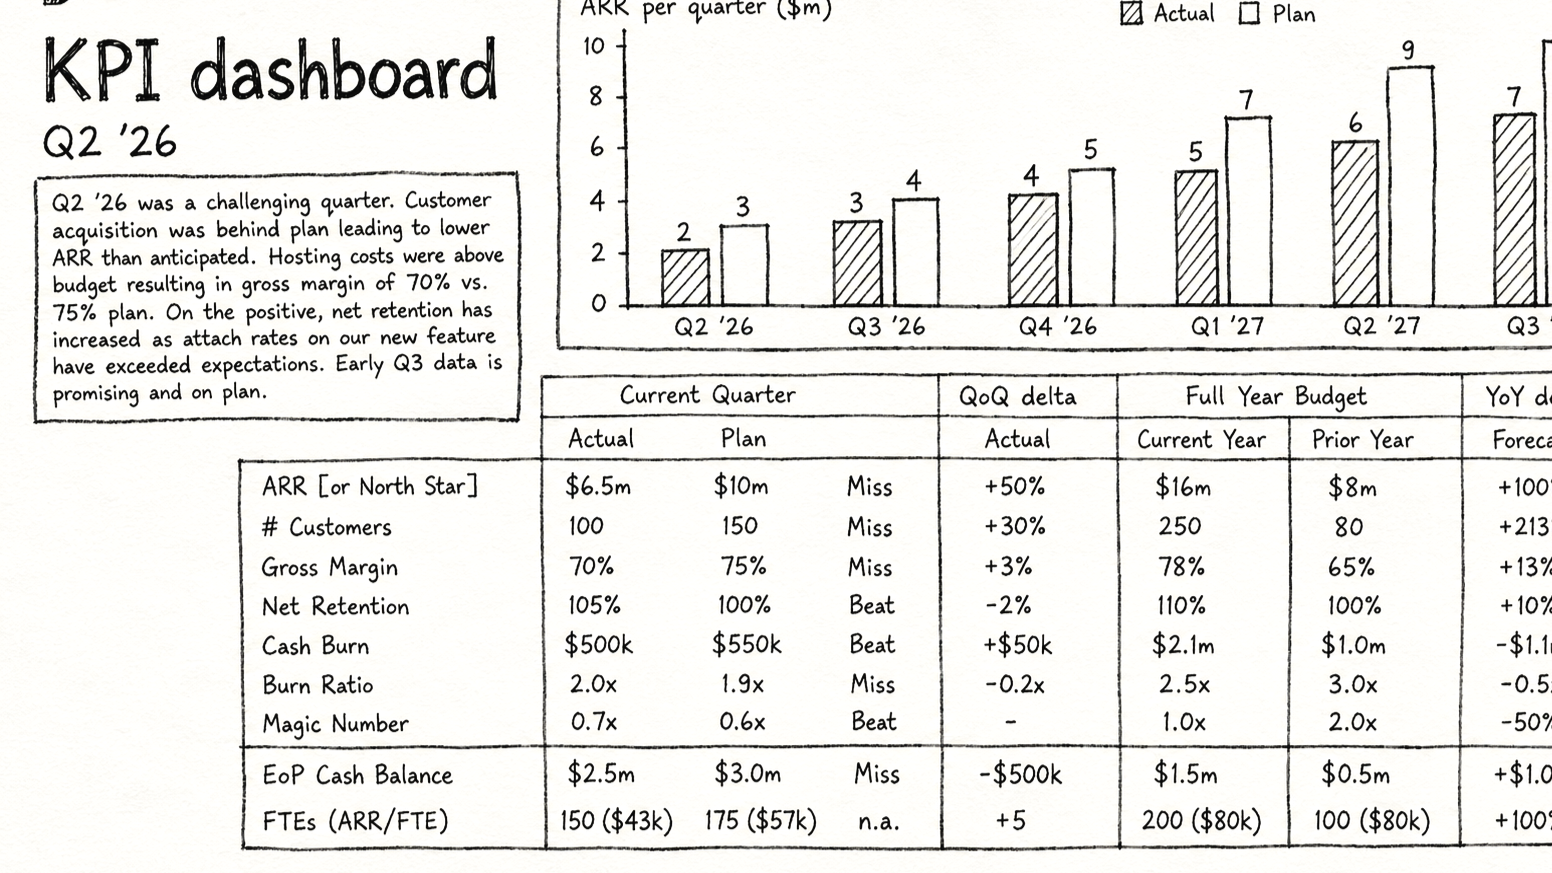 KPI dashboard
Q2 '26
Q2 '26 was a challenging quarter. Customer
acquisition was behind plan leading to lower
ARR than anticipated. Hosting costs were above
budget resulting in gross margin of 70% vs.
75% plan. On the positive, net retention has
increased as attach rates on our new feature
have exceeded expectations. Early Q3 data is
promising and on plan.
ARR per quarter ($m)
Actual Plan
10
8
6
4
2
0
2 3 3 4 4 5 5 7 6 9 7
Q2 '26 Q3 '26 Q4 '26 Q1 '27 Q2 '27 Q3
Current Quarter QoQ delta Full Year Budget YoY
Actual Plan Actual Current Year Prior Year
ARR [or North Star] $6.5m $10m Miss +50% $16m $8m +100
# Customers 100 150 Miss +30% 250 80 +213
Gross Margin 70% 75% Miss +3% 78% 65% +13%
Net Retention 105% 100% Beat -2% 110% 100% +10%
Cash Burn $500k $550k Beat +$50k $2.1m $1.0m -$1.1
Burn Ratio 2.0x 1.9x Miss -0.2x 2.5x 3.0x -0.5
Magic Number 0.7x 0.6x Beat - 1.0x 2.0x -50%
EoP Cash Balance $2.5m $3.0m Miss -$500k $1.5m $0.5m +$1.0
FTEs (ARR/FTE) 150 ($43k) 175 ($57k) n.a. +5 200 ($80k) 100 ($80k) +100%